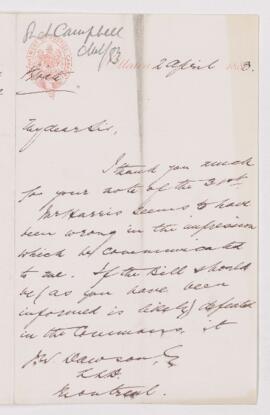 R. Campbell
Ottawa, 2 April 1883.
My dear Sir,
I thank you much
for your note of the 31st
Mr Harris seems to have
been wrong in the impression
which he communicated
to me. If the Bill should
be (as you have been
informed is likely) defeated
in the Commons, it
J. W. Dawson, Esq
LLD
Montreal.